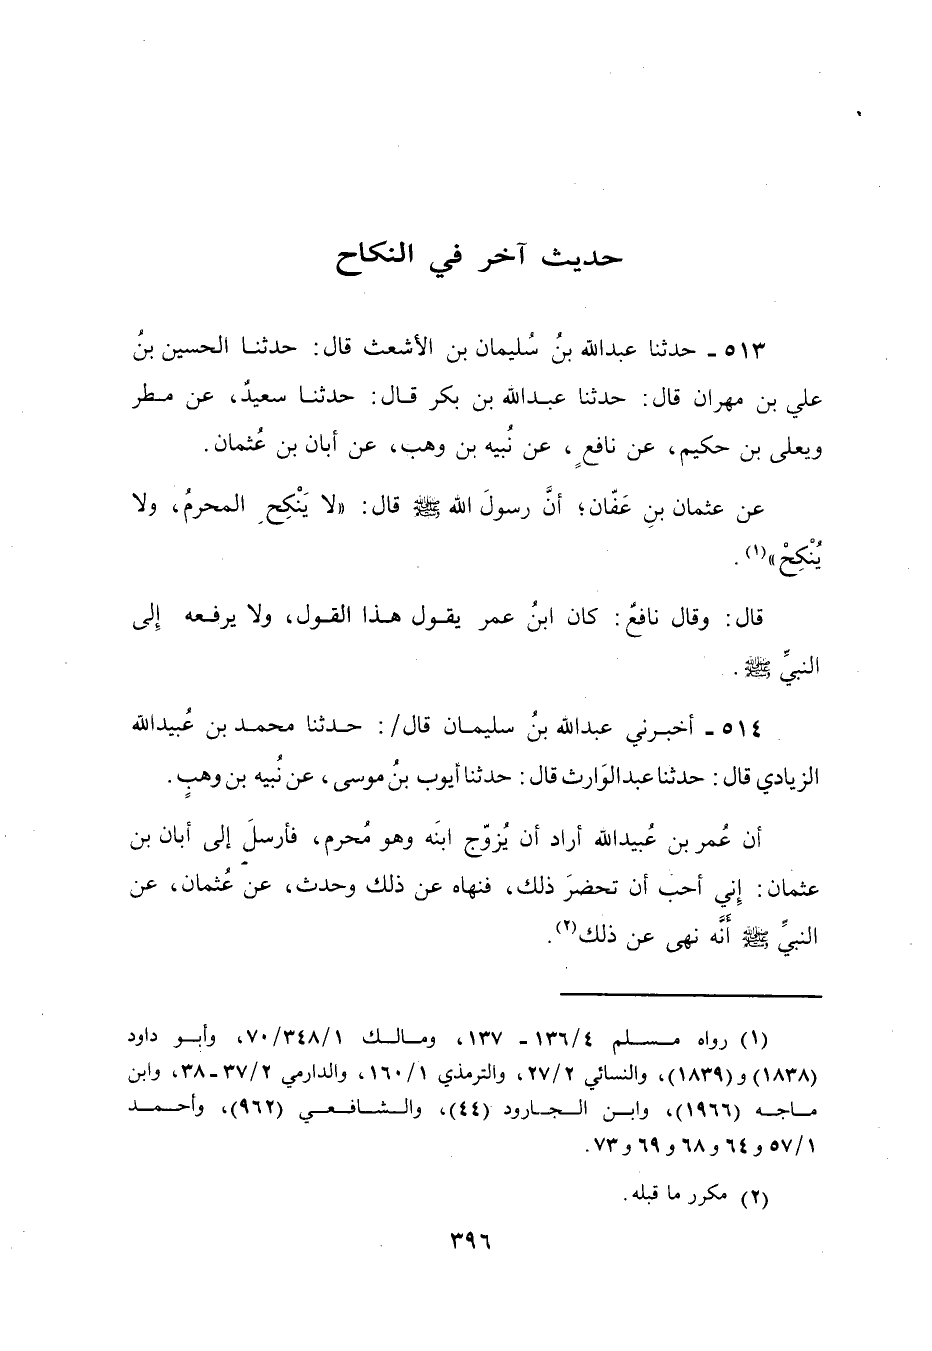 حديث آخر في النكاح
٥١٣ - حدثنا عبدالله بنُ سُليمان بن الأشعث قال: حدثنا الحسين بنُ
علي بن مهران قال: حدثنا عبدالله بن بكر قال: حدثنا سعيدٌ، عن مطر
ويعلى بن حكيم، عن نافعٍ، عن نُبيه بن وهب، عن أبان بن عُثمان.
عن عثمان بنِ عَفّان؛ أنَّ رسولَ الله ﷺ قال: «لا يَنْكِحِ المحرمُ، ولا
يُنْكِحْ»(١).
قال: وقال نافعٌ: كان ابنُ عمر يقول هذا القول، ولا يرفعه إلى
النبيِّ ﷺ.
٥١٤ - أخبرني عبدالله بنُ سليمان قال/: حدثنا محمد بن عُبيدالله
الزيادي قال: حدثنا عبدالوَارث قال: حدثنا أيوب بنُ موسى، عن نُبيه بن وهبٍ.
أن عُمر بن عُبيدالله أراد أن يُزوّج ابنَه وهو مُحرم، فأرسلَ إلى أبان بن
عثمان: إني أحب أن تحضرَ ذلك، فنهاه عن ذلك وحدث، عن عُثمان، عن
النبيِّ ﷺ أنَّه نهى عن ذلك(٢).
(١) رواه مسلم ١٣٦/٤ - ١٣٧، ومالك ٧٠/٣٤٨/١، وأبو داود
(١٨٣٨) و(١٨٣٩)، والنسائي ٢٧/٢، والترمذي ١٦٠/١، والدارمي ٣٧/٢-٣٨، وابن
ماجه (١٩٦٦)، وابن الجارود (٤٤)، والشافعي (٩٦٢)، وأحمد
٥٧/١ و٦٤ و٦٨ و٦٩ و٧٣.
(٢) مكرر ما قبله.
٣٩٦